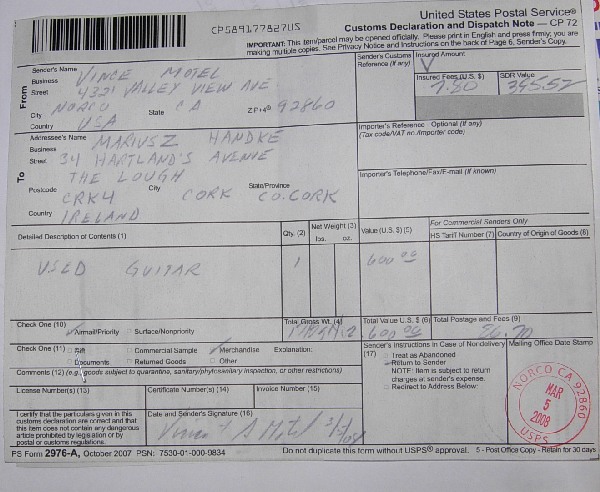 United States Postal Service®
Customs Declaration and Dispatch Note — CP 72
CP589177827US
IMPORTANT: This item/parcel may be opened officially. Please print in English and press firmly; you are
making multiple copies. See Privacy Notice and Instructions on the back of Page 6, Sender's Copy.
From
Sender's Name VINCE MOTEL
Business
Street 4321 VALLEY VIEW AVE
City NORCO State CA ZIP+4® 92860
Country USA
Sender's Customs Reference (If any)
Insured Amount
Insured Fees (U.S. $) 7.80
SDR Value 395.52
To
Addressee's Name MARIUSZ HANDKE
Business
Street 34 HARTLAND'S AVENUE
THE LOUGH
Postcode CRK4 City CORK State/Province CO. CORK
Country IRELAND
Importer's Reference - Optional (If any)
(Tax code/VAT no./importer code)
Importer's Telephone/Fax/E-mail (If known)
Detailed Description of Contents (1)
Qty. (2)
Net Weight (3)
lbs. oz.
Value (U.S. $) (5)
For Commercial Senders Only
HS Tariff Number (7) Country of Origin of Goods (8)
USED GUITAR 1 600 00
Check One (10)
Airmail/Priority Surface/Nonpriority
Total Gross Wt. (4)
Total Value U.S. $ (6) 600 00
Total Postage and Fees (9)
Check One (11) Gift Commercial Sample Merchandise Explanation:
Documents Returned Goods Other
Comments (12) (e.g., goods subject to quarantine, sanitary/phytosanitary inspection, or other restrictions)
Sender's Instructions in Case of Nondelivery (17)
Treat as Abandoned
Return to Sender
NOTE: Item is subject to return
charges at sender's expense.
Redirect to Address Below:
Mailing Office Date Stamp
NORCO CA 92860
MAR
5
2008
USPS
License Number(s) (13) Certificate Number(s) (14) Invoice Number (15)
I certify that the particulars given in this
customs declaration are correct and that
this item does not contain any dangerous
article prohibited by legislation or by
postal or customs regulations.
Date and Sender's Signature (16)
PS Form 2976-A, October 2007 PSN: 7530-01-000-9834
Do not duplicate this form without USPS® approval. 5 - Post Office Copy - Retain for 30 days